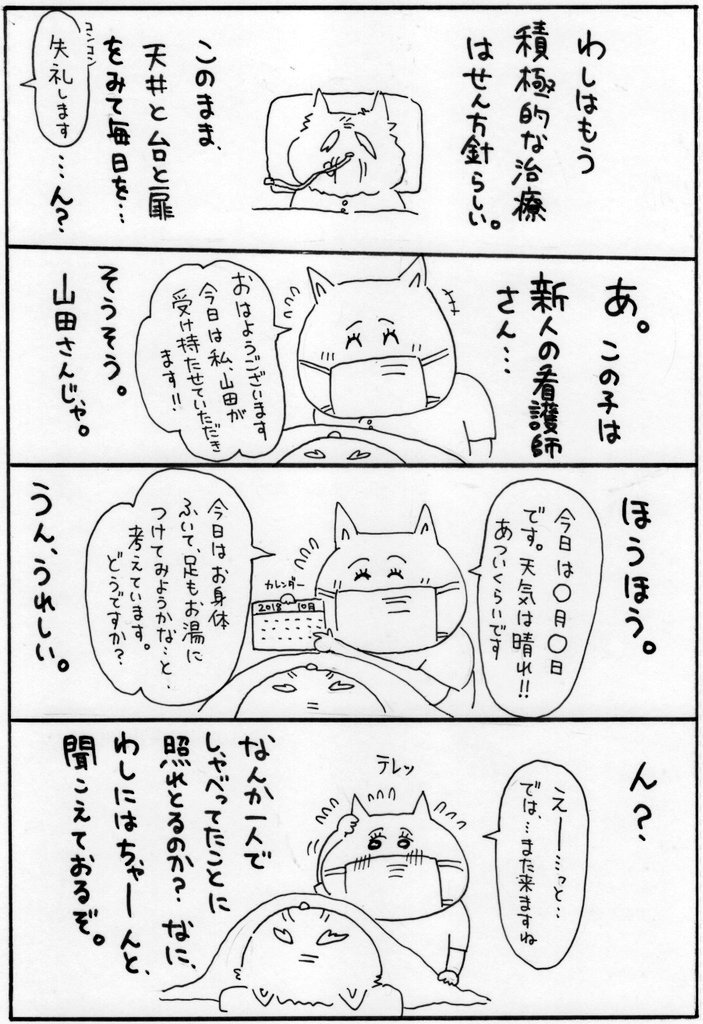 わしはもう
積極的な治療
はせん方針らしい。
このまま、
天井と台と扉
をみて毎日を…
コンコン
失礼します
…ん?
あ。この子は
新人の看護師
さん…
おはようございます
今日は私、山田が
受け持たせていただき
ます!!
そうそう。
山田さんじゃ。
ほうほう。
今日は〇月〇日
です。天気は晴れ!!
あついくらいです
カレンダー
2018 10月
今日はお身体
ふいて、足もお湯に
つけてみようかな…と、
考えています。
どうですか?
うん、うれしい。
ん?
えー…っと…
では、…また来ますね
テレッ
なんか一人で
しゃべってたことに
照れとるのか?なに、
わしにはちゃーんと、
聞こえておるぞ。